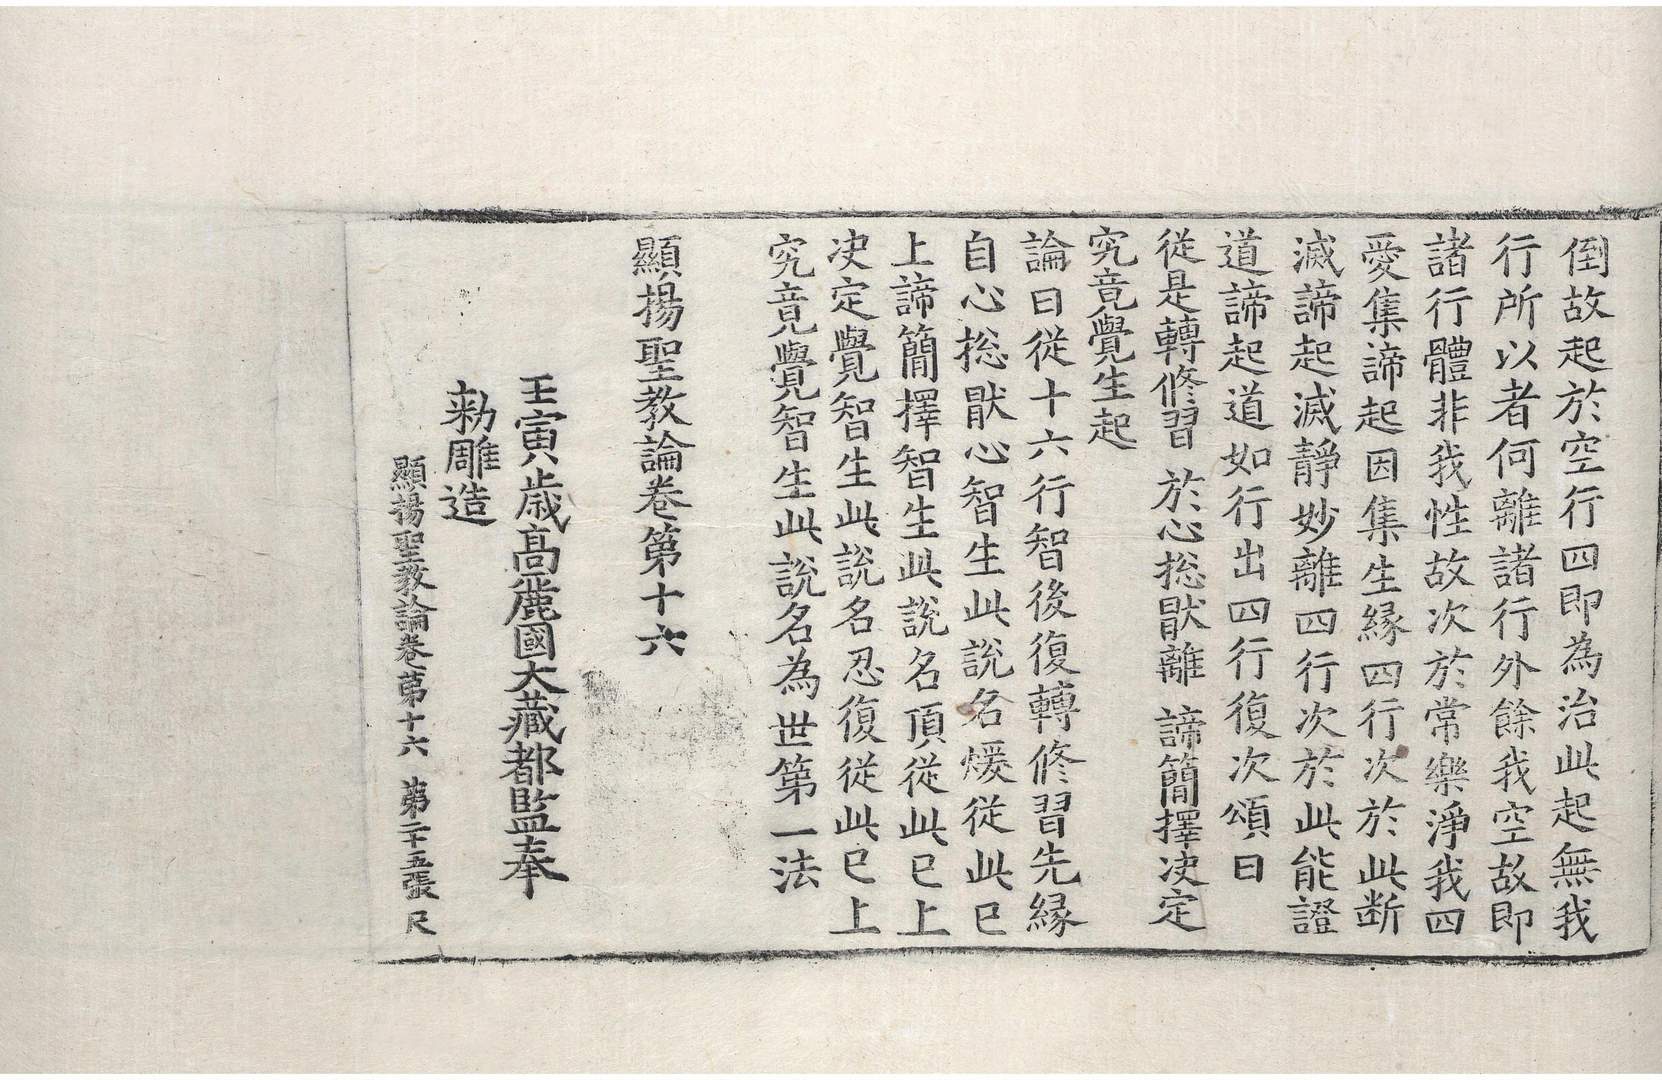 倒故起於空行四即為治此起無我
行所以者何離諸行外餘我空故即
諸行體非我性故次於常樂淨我四
愛集諦起因集生縁四行次於此断
滅諦起滅靜妙離四行次於此能證
道諦起道如行出四行復次頌曰
從是轉修習 於心捴猒離 諦簡擇决定
究竟覺生起
論曰從十六行智後復轉修習先縁
自心捴猒心智生此說名煖從此已
上諦簡擇智生此說名頂從此已上
决定覺智生此說名忍復從此已上
究竟覺智生此說名為世第一法
顯揚聖教論卷第十六
壬寅歲高麗國大藏都監奉
勑雕造
顯揚聖教論卷第十六 第二十五張 尺